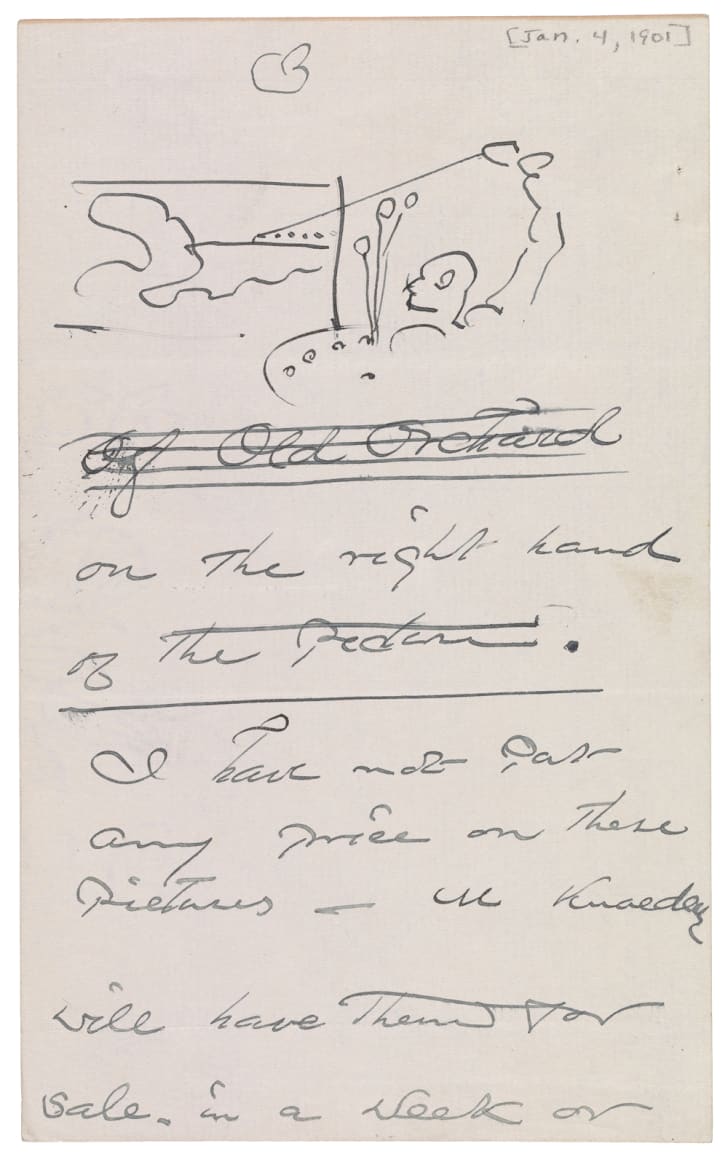 [Jan. 4, 1901]
Of Old Orchard
on the right hand
of the Picture.
I have not Put
any price on these
Pictures — M Knoedler
will have them for
sale. in a week or